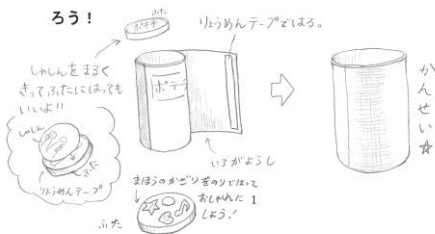 ろう！
ふた
ポテチ
りょうめんテープではる。
しゃしんをまるく
きってふたにはっても
いいよ!!
しゃしん
ふた
りょうめんテープ
ポテ
いろがようし
かんせい☆
まほうのかざりをのりではって
おしゃれに1
しよう！
ふた